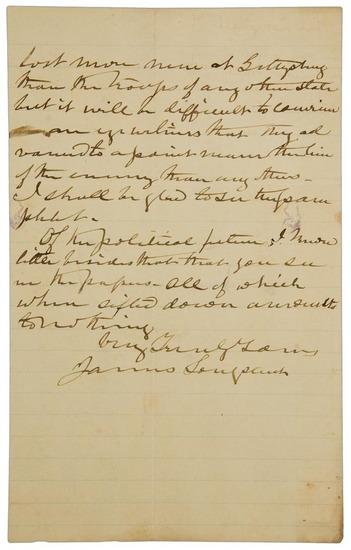 lost more men at Gettysburg
than the troops of any other state
but it will be difficult to convince
an eye witness that they ad
vanced to a point nearer the line
of the enemy than any others -
I shall be glad to see the pam
phlet -
Of the political future, I know
little besides that that you see
in the papers - all of which
when sifted down amounts
to nothing
Very Truly Yours
James Longstreet